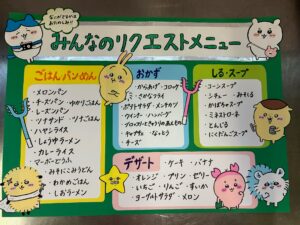 なにがでるかは
おたのしみ!
みんなのリクエストメニュー
ごはん パン めん
・メロンパン
・チーズパン ・ゆかりごはん
・レーズンパン
・ツナサンド ・ツナごはん
・ハヤシライス
・しょうゆラーメン
・カレーライス
・マーボーどうふ
・みそにこみうどん
・わかめごはん
・しおラーメン
おかず
・からあげ ・コロッケ
・さかなフライ
・ポテトサラダ ・メンチカツ
・ウインナー ・ハンバーグ
・ブロッコリーと
・なっとう
・チーズ
しる・スープ
・コーンスープ
・シチュー ・みそしる
・かぼちゃスープ
・ミネストローネ
・とんじる
・にくだんごスープ
デザート
・ケーキ ・バナナ
・オレンジ ・プリン ・ゼリー
・いちご ・りんご ・すいか
・ヨーグルトサラダ ・メロン